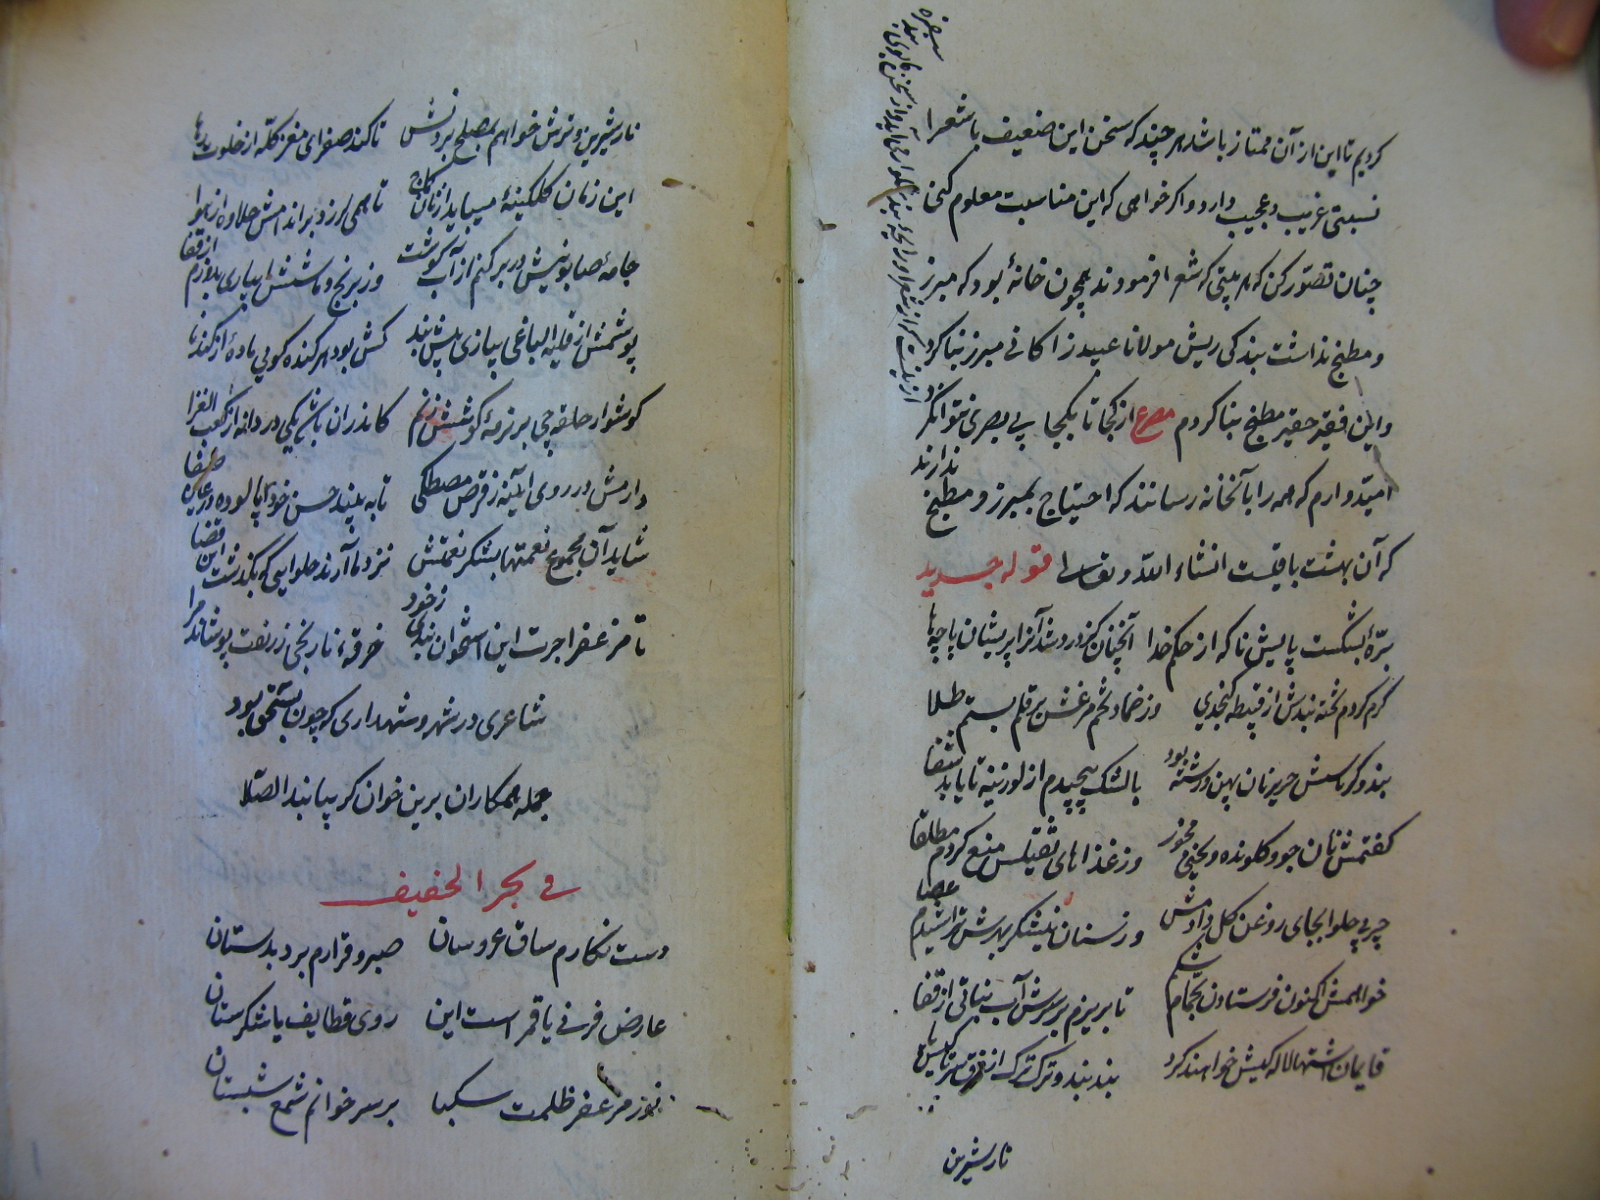 کردیم تا این از آن ممتاز باشد هر چند که سخن این ضعیف با شعرا
نسبتی غریب و عجیب دارد و اکر خواهی که این مناسبت معلوم کنی
چنان تصوّر کن که هر بیتی که شعرا فرمودند همچون خانهٔ بود که مبرز
و مطبخ نداشت بندکی ریش مولانا عبید زاکانی مبرز بنا کرد
و این فقیر حقیر مطبخ بنا کردم مصرع از کجا تا بکجا
امیدوارم که همه را با آنخانه رسانند که احتیاج بمبرز و مطبخ ندارند
که آن بهشت باقیست انشاء الله تعالی قوله جدید
برّهٔ بشکست پایش ناکه از حکم خدا آنچنان کز درد شد آنرا پریشان پاچه‌ها
کرم کردم تخته بندش از قبیطه کنجدی وز ضماد تخم مرغش بر قلم بستم طلا
بند و کرباسش حریر نان پهن و رشته بود بالشک پیچیدم از لوزینه تا یابد شفا
کفتمش نان جو و کلونده و یخنی مخور وز غذاهای ثقیلش منع کردم مطلقا
چربی حلوا بجای روغن کل دادمش وز نیشکر بهرش تراشیدم عصا
خواهمش اکنون فرستادن بحمام تا بریزم بر سرش آب نباتی از قفا
بند بند و ترک ترک از فرق سر تا
نار شیرین
نار شیرین و ترش خواهم بمصلح بردنش تا کند صفرای مغز کله از خلوت رها
این زمان کلکینهٔ میباید از نان کماج تا همی لرزد بر اندامش حلاوه از هوا
جامهٔ صابونیش در بر کنم از آب کوشت وز برنج و ماشش بیاری بدوزم از قفا
پوشمش از قلیه الباغی پیازی پیش بند کش بود هر کنده کویی مادهٔ از کندنا
کوشوار حلقه چی بر نرمهٔ کوشش زنم کاندران باشد یکی دردانه از کعب الغزا
دارمش در روی آیینه ز قرص مصطکی تا به بیند حسن خود پالوده در عین صفا
شاید آن مجموع نعمتها بشکر نعمتش نزد ما آرند حلوایی که بکذشت این قضا
تا مزعفر اجرت این استخوان بندی ز خود خرقهٔ نارنجی زربفت پوشاند مرا
شاعری در شهر و شهداری که چون بسحق بود
جمله همکاران برین خوان کر بیایند الصلا
فی بحر الخفیف
دست نکارم ساق عروسان صبر و قرارم برد بدستان
عارض فرنی یا قمر است این روی قطایف یا شکرستان
نور مزعفر ظلمت سکبا بر سر خوانم شمع شبستان